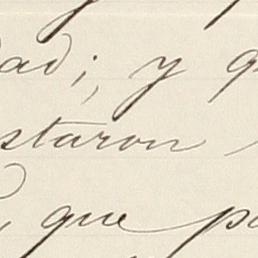 dad; y q
staron
, que p